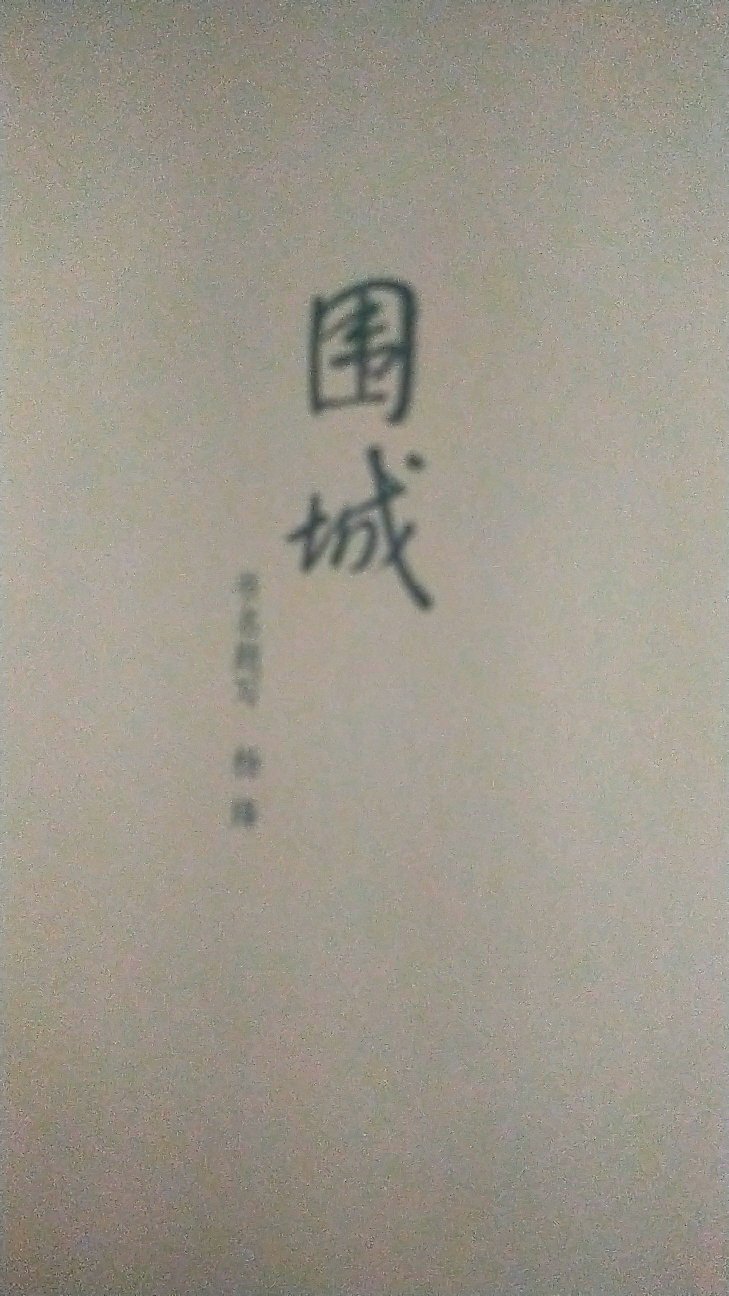 围城
书名题写 杨绛